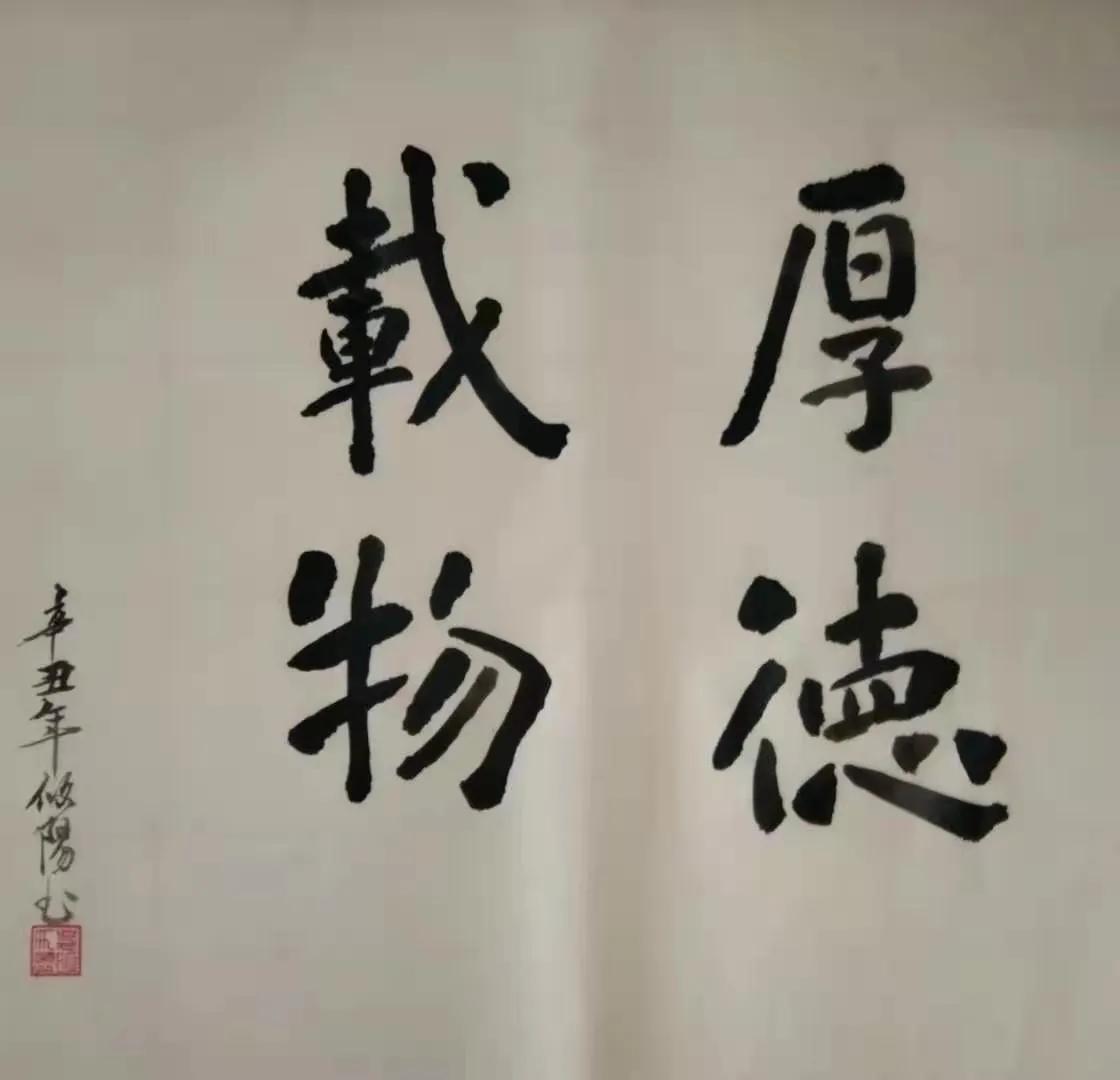 厚德
載物
辛丑年修陽书